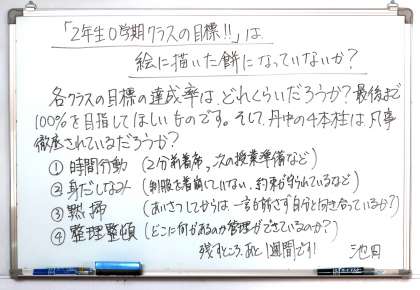 「2年生0学期クラスの目標!!」は
絵に描いた餅になっていないか?
各クラスの目標の達成率は、どれくらいだろうか?最後まで
100%を目指してほしいものです。そして、丹中の4本柱は凡事
徹底されているだろうか?
① 時間行動 (2分前着席、次の授業準備など)
② 身だしなみ (制服を着崩していない、約束が守られているなど)
③ 黙掃 (あいさつしてからは一言も話さず自分と向き合っているか?)
④ 整理整頓 (どこに何があるのか管理ができているのか?)
残すところ、あと1週間です!
池田